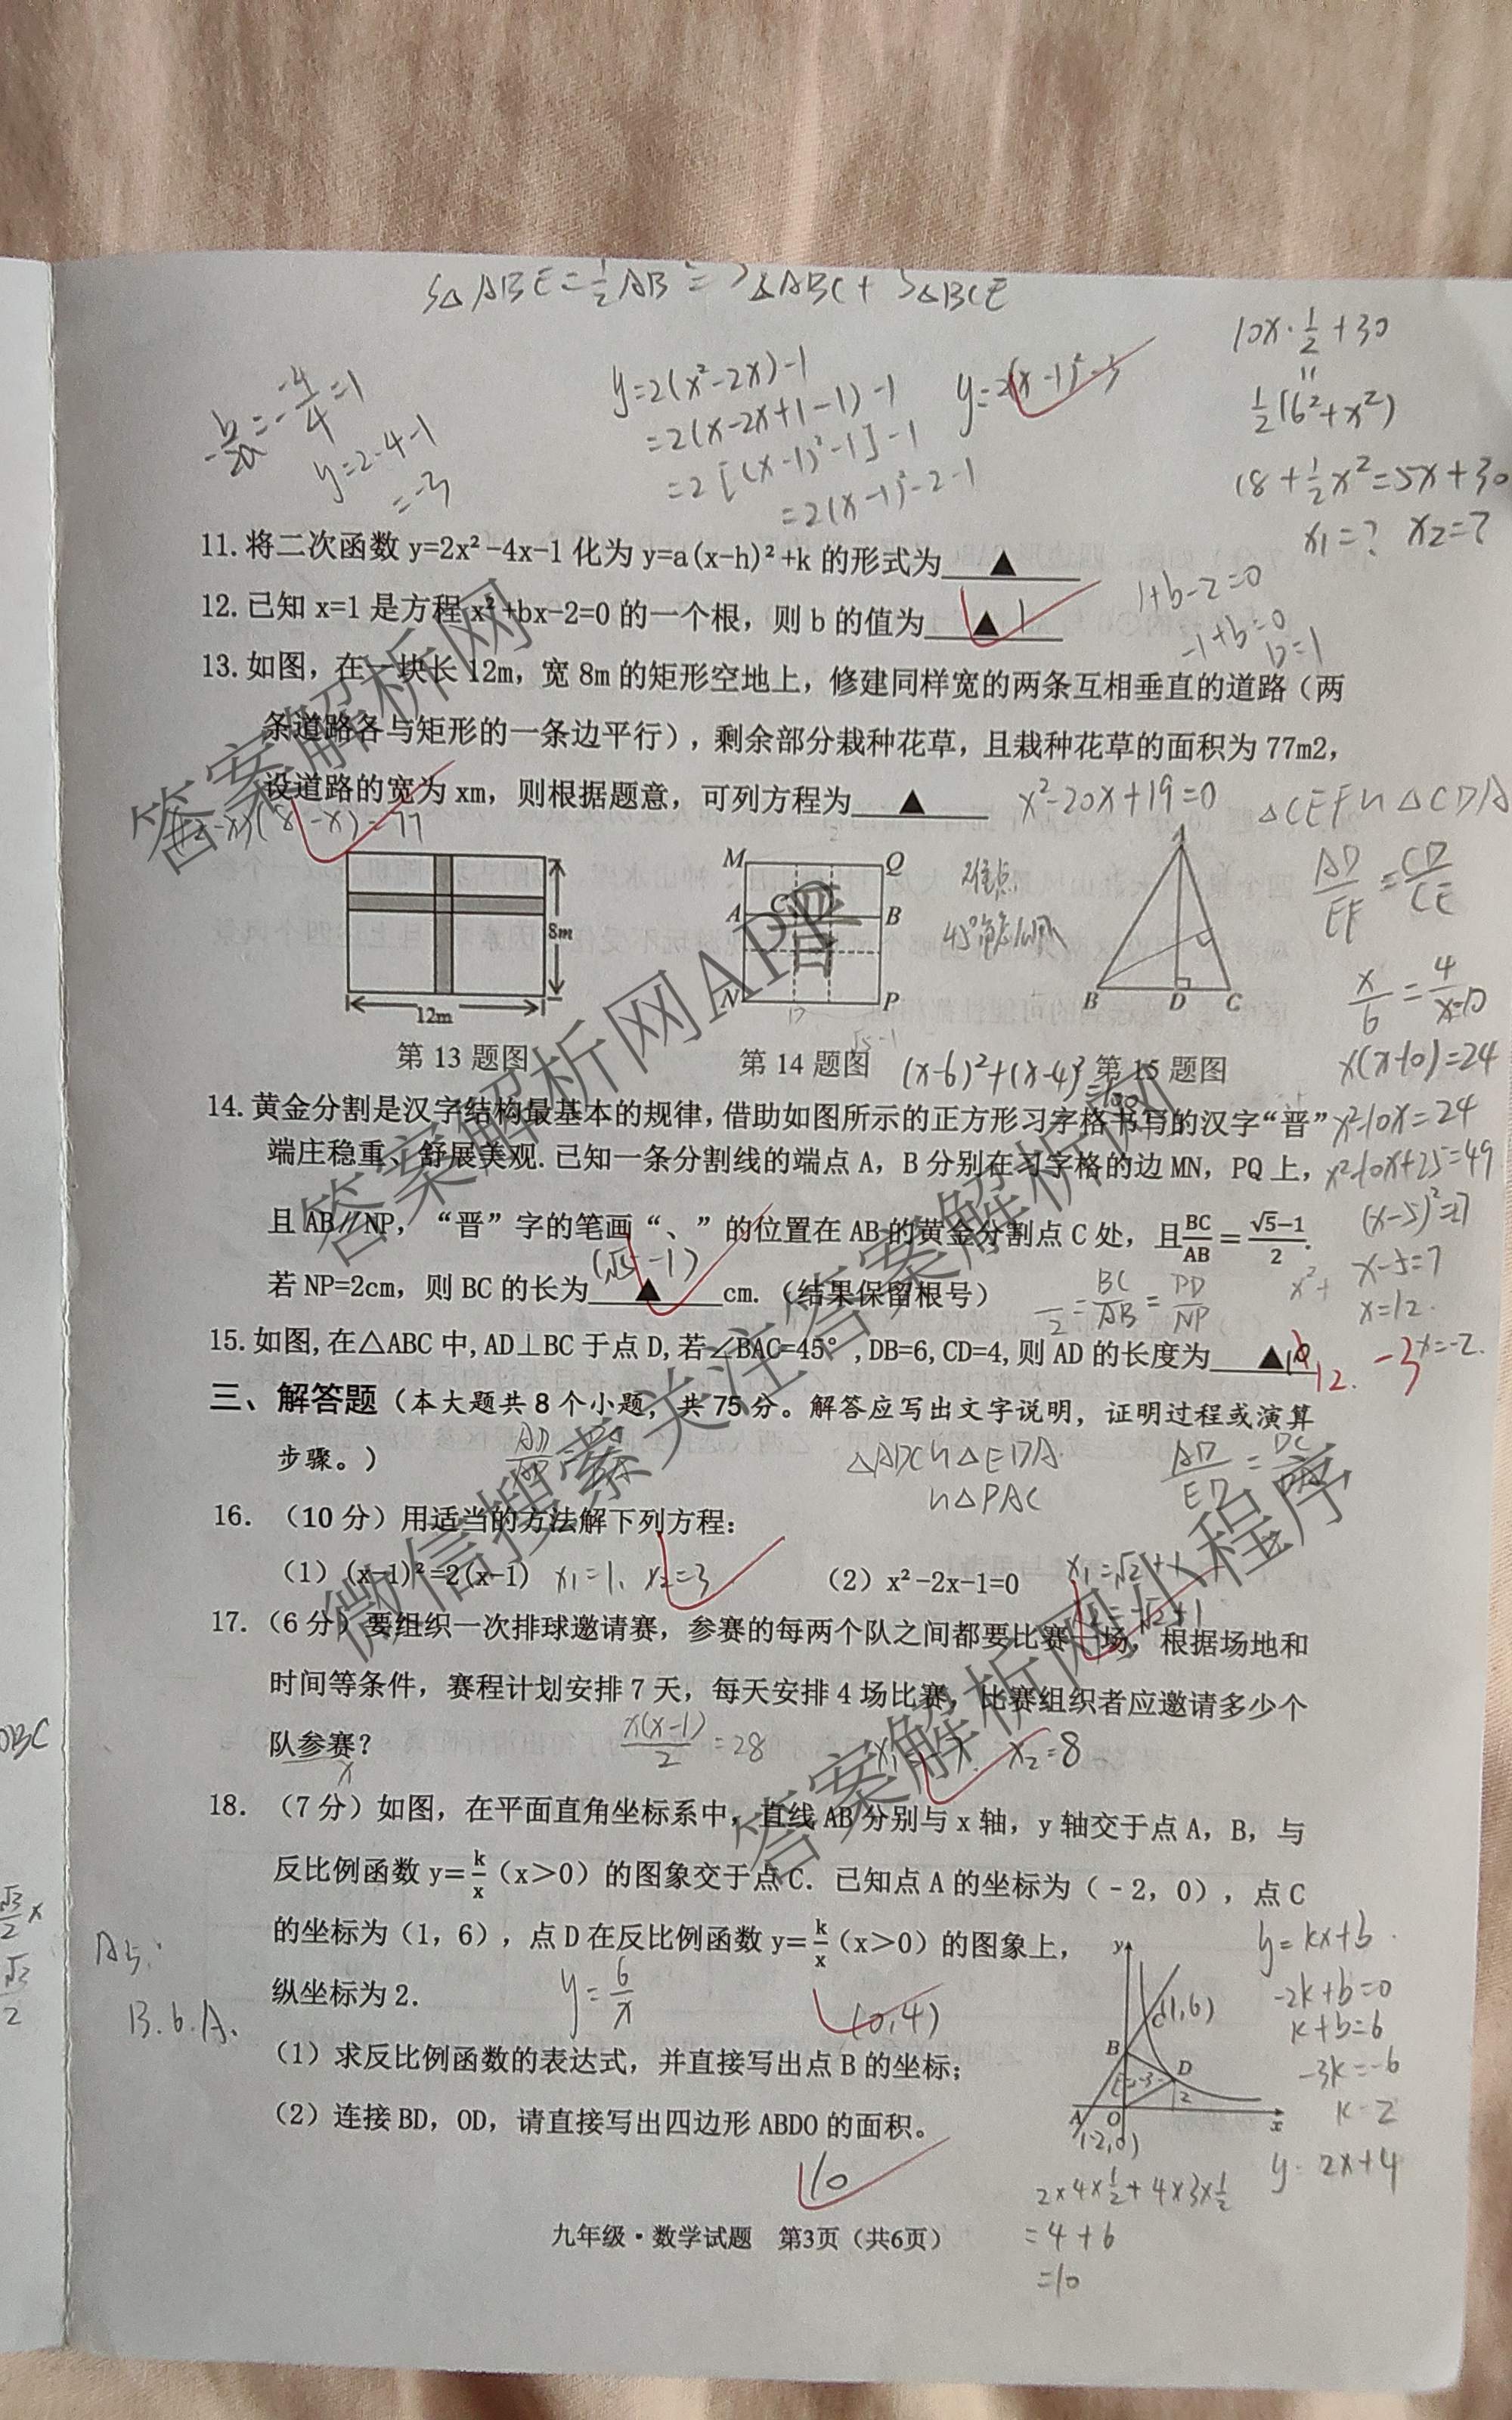 S△ABE=½AB²=S△ABC+S△BCE
10x·½+30
=
½(6²+x²)
18+½x²=5x+30
x₁=? x₂=?
-b/2a=-(-4)/4=1
y=2-4-1
=-3
y=2(x²-2x)-1
=2(x-2x+1-1)-1
=2[(x-1)²-1]-1
=2(x-1)²-2-1
y=2(x-1)²-3
11.将二次函数 y=2x²-4x-1 化为 y=a(x-h)²+k 的形式为▲
12.已知 x=1 是方程 x²+bx-2=0 的一个根，则 b 的值为▲ 1
1+b-2=0
-1+b=0
b=1
13.如图，在一块长 12m，宽 8m 的矩形空地上，修建同样宽的两条互相垂直的道路（两
条道路各与矩形的一条边平行），剩余部分栽种花草，且栽种花草的面积为 77m2，
设道路的宽为 xm，则根据题意，可列方程为▲
x²-20x+19=0
(12-x)(8-x)=77
△CEF∽△CDA
AD/EF=CD/CE
8m
12m
M Q
A C B
N P
晋
A
B D C
第 13 题图
第 14 题图
第 15 题图
√5-1
(x-6)²+(x-4)²=100
x/6=4/x-10
x(x-10)=24
x²-10x=24
x²-10x+25=49
(x-5)²=7
x-5=7
x=12.
x=-2.
14.黄金分割是汉字结构最基本的规律，借助如图所示的正方形习字格书写的汉字“晋”
端庄稳重、舒展美观.已知一条分割线的端点 A，B 分别在习字格的边 MN，PQ 上，
且 AB∥NP，“晋”字的笔画“、”的位置在 AB 的黄金分割点 C 处，且BC/AB=(√5-1)/2.
(√5-1)
若 NP=2cm，则 BC 的长为▲cm.（结果保留根号）
BC/AB=PD/NP
15.如图，在△ABC 中，AD⊥BC 于点 D，若∠BAC=45°，DB=6，CD=4，则 AD 的长度为▲
12. -3
三、解答题（本大题共 8 个小题，共 75 分。解答应写出文字说明，证明过程或演算
步骤。）
△ADC∽△EDA
∽△PAC
16.（10 分）用适当的方法解下列方程：
（1）(x-1)²=2(x-1) x₁=1, x₂=3
（2）x²-2x-1=0 x₁=√2+1
x₂=-√2+1
17.（6 分）要组织一次排球邀请赛，参赛的每两个队之间都要比赛一场，根据场地和
时间等条件，赛程计划安排 7 天，每天安排 4 场比赛，比赛组织者应邀请多少个
队参赛？
x
x(x-1)/2=28
x₂=8
18.（7 分）如图，在平面直角坐标系中，直线 AB 分别与 x 轴，y 轴交于点 A，B，与
反比例函数 y=k/x（x＞0）的图象交于点 C．已知点 A 的坐标为（-2，0），点 C
的坐标为（1，6），点 D 在反比例函数 y=k/x（x＞0）的图象上，
纵坐标为 2．
y=6/x
(0,4)
（1）求反比例函数的表达式，并直接写出点 B 的坐标；
（2）连接 BD，OD，请直接写出四边形 ABDO 的面积。
10
y
C(1,6)
B
D
2
A O x
(-2,0)
y=kx+b
-2k+b=0
k+b=6
-3k=-6
k=2
y=2x+4
2×4×½+4×3×½
=4+6
=10
B.6.A.
九年级·数学试题 第3页（共6页）
答案解析网
答案解析网APP
微信搜索关注答案解析网
答案解析网小程序